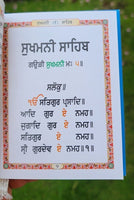 ਸੁਖਮਨੀ ਸਾਹਿਬ
ਗਉੜੀ ਸੁਖਮਨੀ ਮਃ ੫॥
ਸਲੋਕੁ॥
ੴ ਸਤਿਗੁਰ ਪ੍ਰਸਾਦਿ॥
ਆਦਿ ਗੁਰ ਏ ਨਮਹ॥
ਜੁਗਾਦਿ ਗੁਰ ਏ ਨਮਹ॥
ਸਤਿਗੁਰ ਏ ਨਮਹ॥
ਸ੍ਰੀ ਗੁਰਦੇਵ ਏ ਨਮਹ॥੧॥